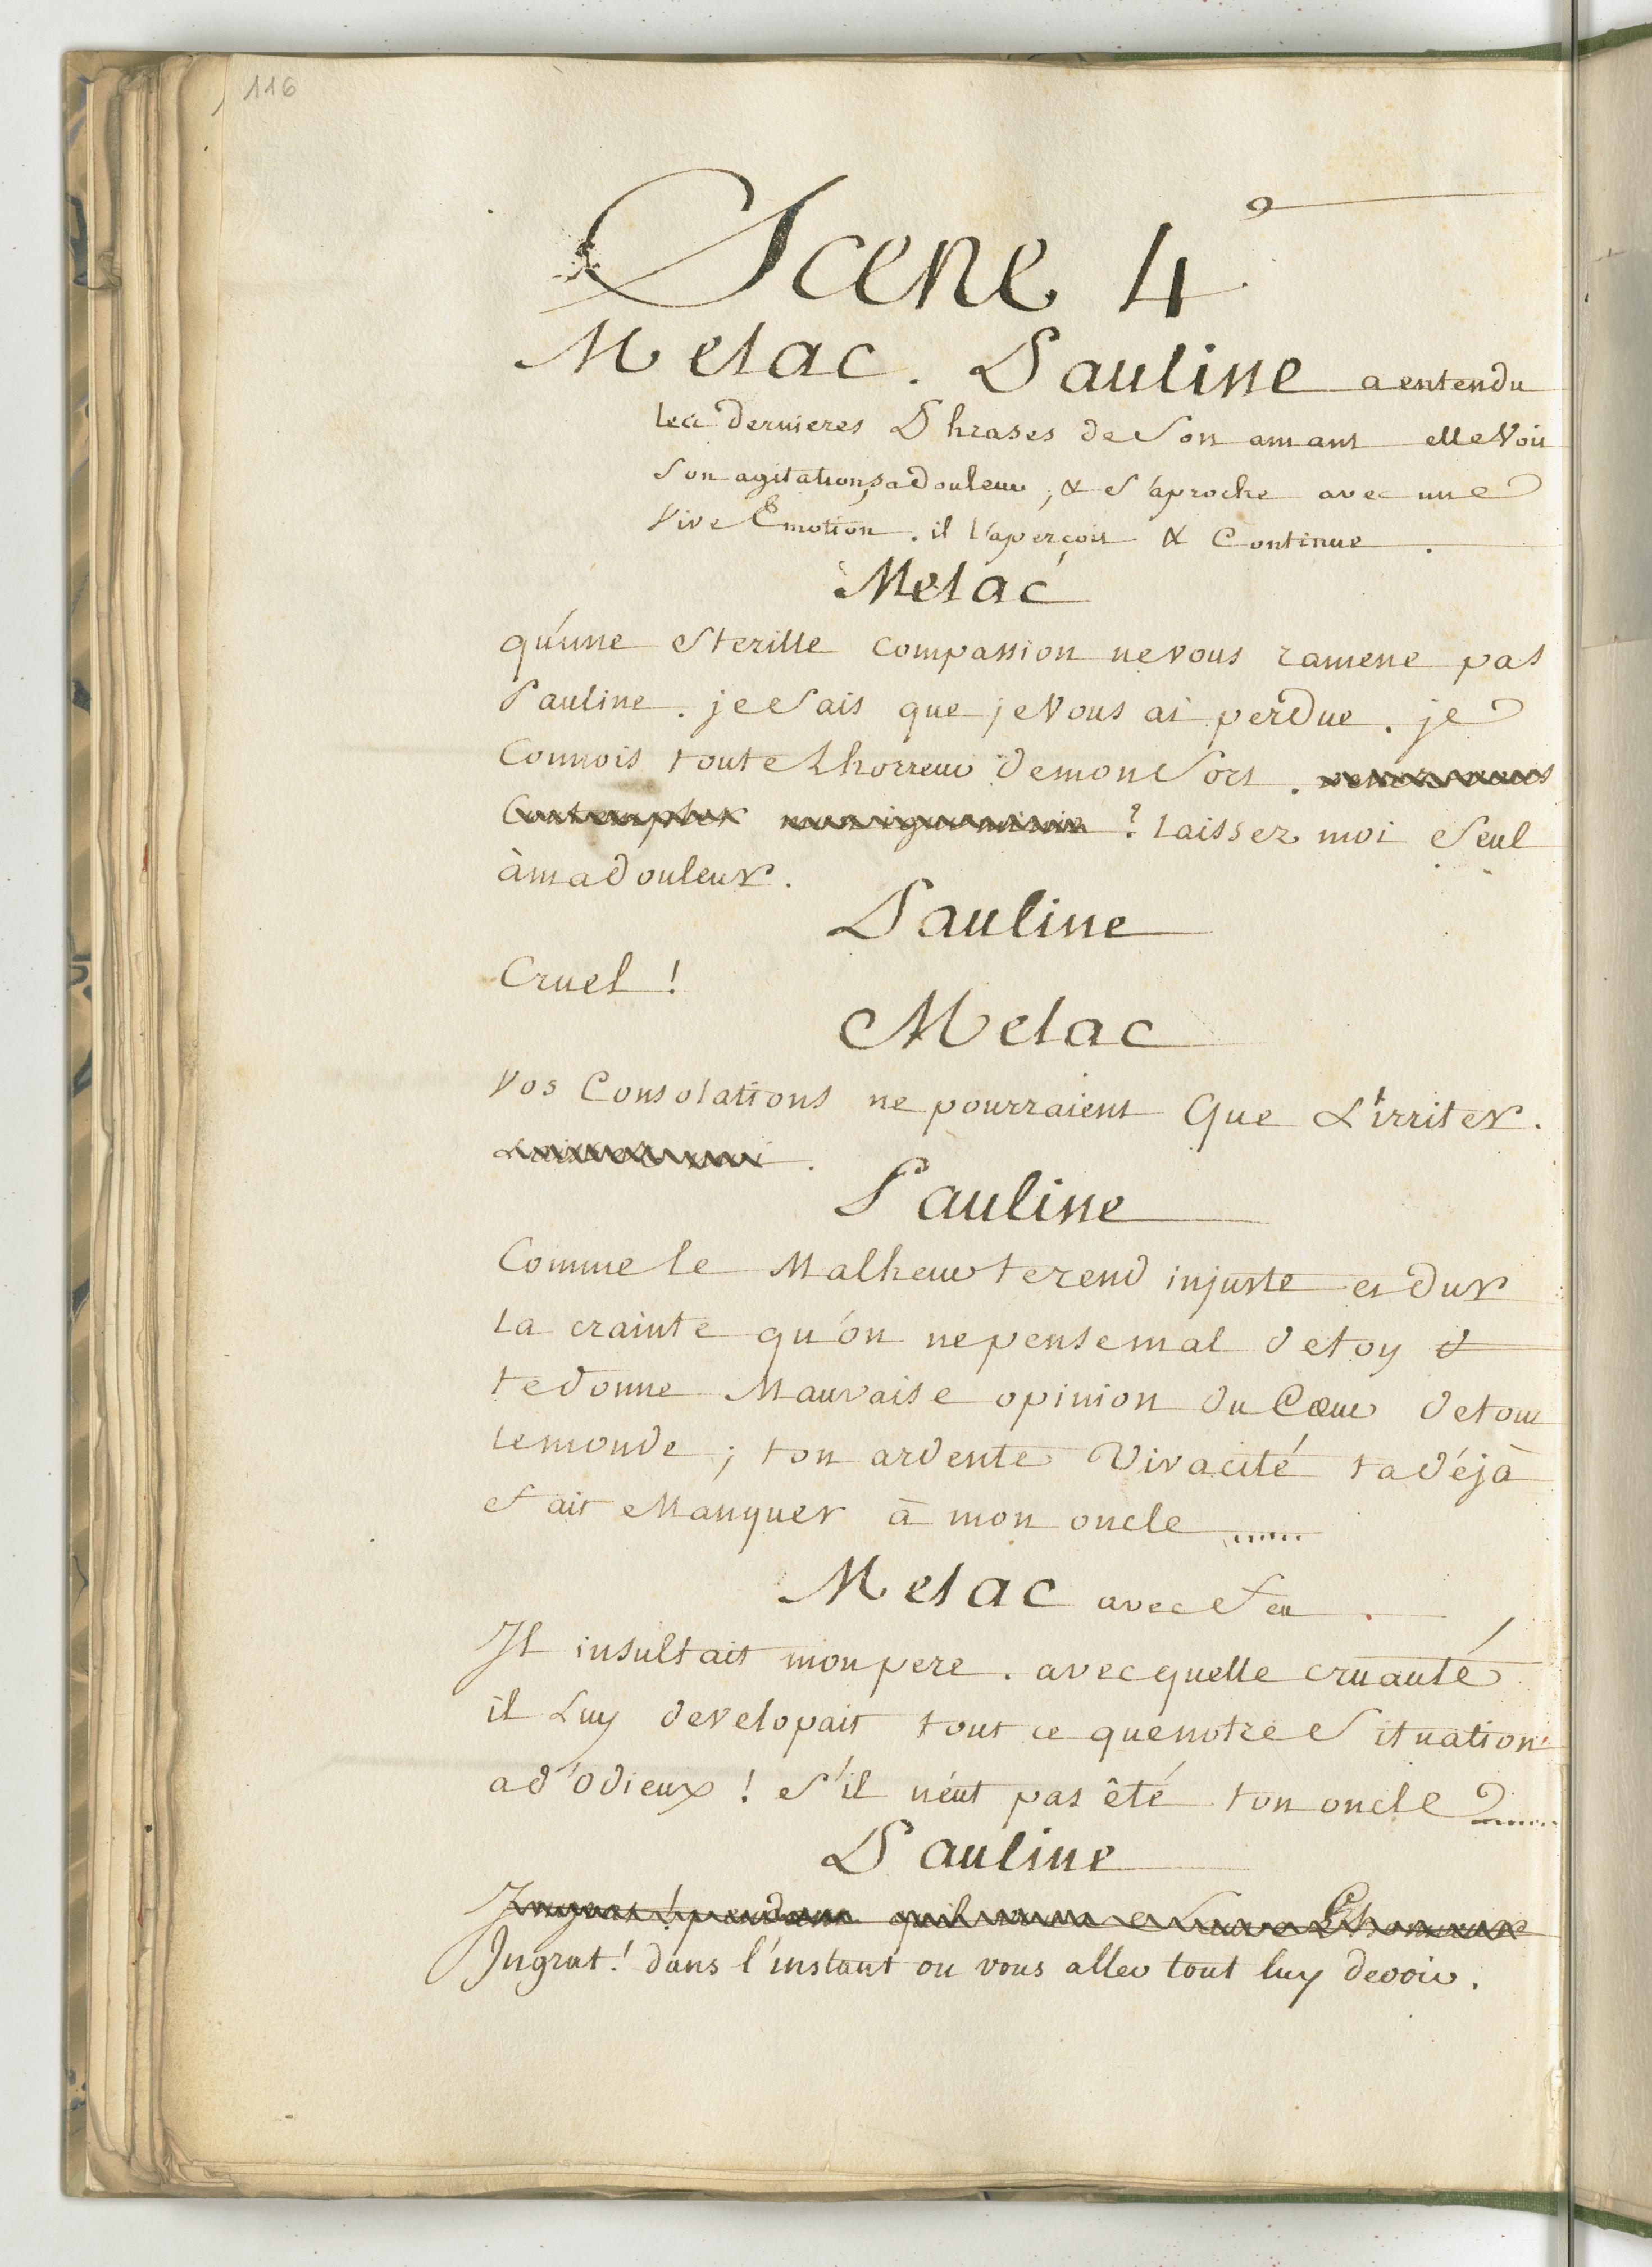 116
Scene 4e
Melac. Pauline a entendu
les dernieres Phrases de Son amant elle Voit
Son agitation, sa douleur, & S'aproche avec une
Vive Emotion. il l'aperçoit & Continue.
Melac
qu'une Sterille compassion ne vous ramene pas
Pauline. je Sais que je Vous ai perdue. je
Connois toute Lhorreur de mon Sort. venez vous
Contempler mon ignominie ? Laissez moi Seul
à ma douleur.
Pauline
Cruel !
Melac
Vos Consolations ne pourraient Que L'irriter.
Laissez moi.
Pauline
Comme le Malheur te rend injuste et dur
La crainte qu'on ne pense mal de toy
te donne Mauvaise opinion du Cœur de tout
le monde ; ton ardente Vivacité ta déjà
fait Manquer à mon oncle ......
Melac avec feu.
Il insultait mon pere. avec quelle cruauté
il Luy developait tout ce que notre Situation
a d'Odieux ! S'il n'eut pas êté ton oncle ......
Pauline
Ingrat ! dans l'instant ou vous allez tout luy devoir.